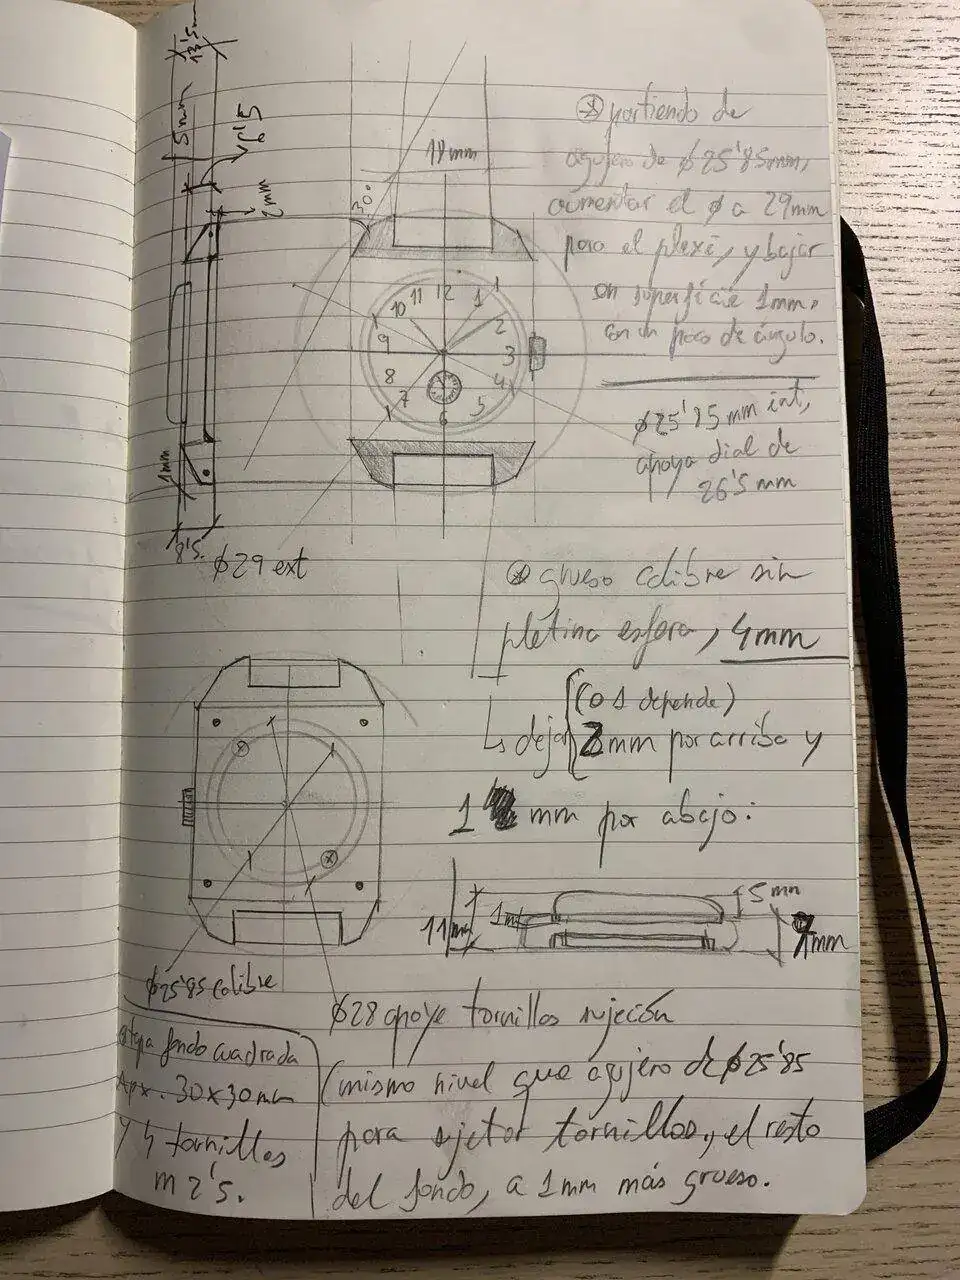 13'5.
5mm
√6'5
2mm
18mm
30°
⊛ partiendo de
agujero de ϕ25'85mm,
aumentar el ϕ a 29mm
para el plexi, y bajar
en superficie 1mm,
con un poco de ángulo.
11 12 1
10 2
9 3
8 4
7 6 5
ϕ25'85 mm int,
apoya dial de
26'5 mm
1mm
8'5.
ϕ29 ext
⊛ grueso calibre sin
pletina esfera, 4mm
(o 1 depende)
dejar 2mm por arriba y
1 mm por abajo.
5 mm
11mm 1m 7mm
ϕ25'85 calibre
ϕ28 apoye tornillos sujeción
(mismo nivel que agujero de ϕ25'85
para sujetar tornillos, el resto
del fondo, a 1mm más grueso.
tapa fondo cuadrada
Apx. 30x30mm
y 4 tornillos
m 2'5.